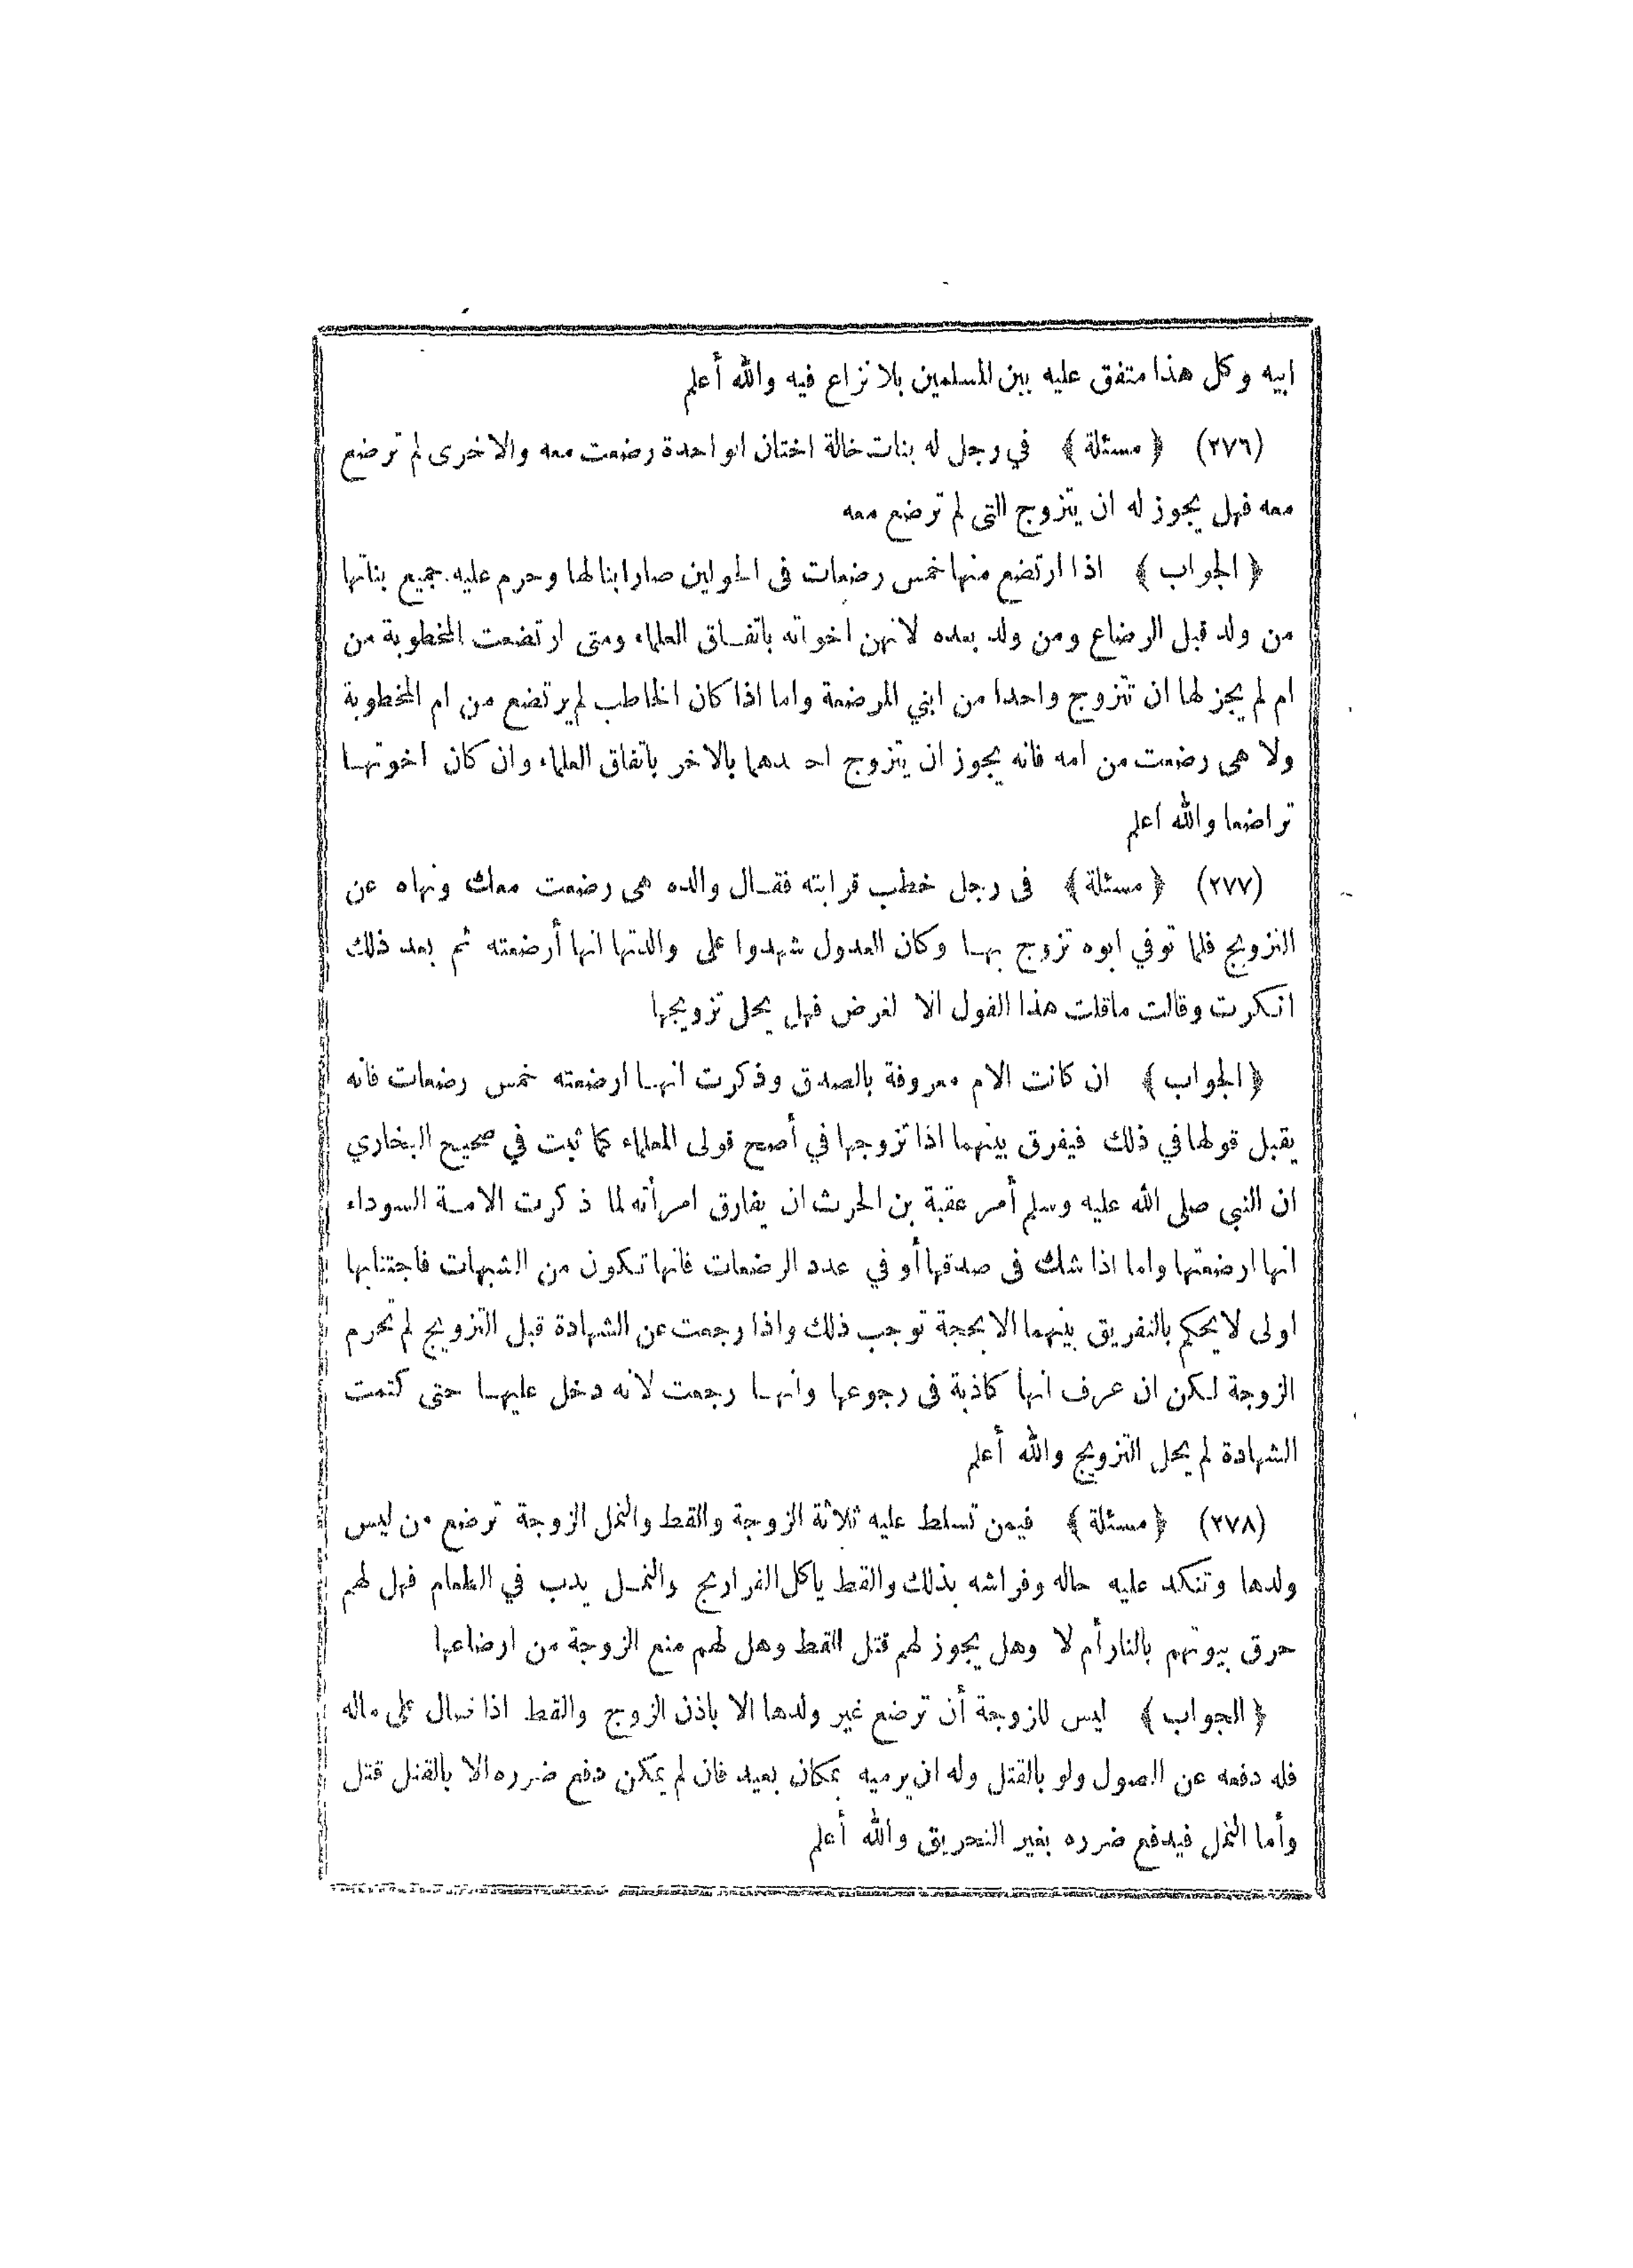 ابيه وكل هذا متفق عليه بين المسلمين بلا نزاع فيه والله أعلم
(٢٧٦) ﴿ مسئلة ﴾ في رجل له بنات خالة اختان الواحدة رضعت معه والاخرى لم ترضع
معه فهل يجوز له ان يتزوج التى لم ترضع معه
﴿ الجواب ﴾ اذا ارتضع منها خمس رضعات فى الحولين صار ابنا لها وحرم عليه جميع بناتها
من ولد قبل الرضاع ومن ولد بعده لانهن اخواته باتفاق العلماء ومتى ارتضعت المخطوبة من
ام لم يجز لها ان تتزوج واحدا من ابني المرضعة واما اذا كان الخاطب لم يرتضع من ام المخطوبة
ولا هى رضعت من امه فانه يجوز ان يتزوج احدهما بالاخر باتفاق العلماء وان كان اخوتها
تراضعا والله اعلم
(٢٧٧) ﴿ مسئلة ﴾ فى رجل خطب قرابته فقال والده هى رضعت معك ونهاه عن
التزويج فلما توفي ابوه تزوج بها وكان العدول شهدوا على والدتها انها أرضعته ثم بعد ذلك
انكرت وقالت ماقلت هذا القول الا لغرض فهل يحل تزويجها
﴿ الجواب ﴾ ان كانت الام معروفة بالصدق وذكرت انها ارضعته خمس رضعات فانه
يقبل قولها في ذلك فيفرق بينهما اذا تزوجها في أصح قولى العلماء كما ثبت في صحيح البخاري
ان النبى صلى الله عليه وسلم أمر عقبة بن الحرث ان يفارق امرأته لما ذكرت الامة السوداء
انها ارضعتها واما اذا شك فى صدقها أو في عدد الرضعات فانها تكون من الشبهات فاجتنابها
اولى لا يحكم بالتفريق بينهما الا بحجة توجب ذلك واذا رجعت عن الشهادة قبل التزويج لم تحرم
الزوجة لكن ان عرف انها كاذبة فى رجوعها وانها رجعت لانه دخل عليها حتى كتمت
الشهادة لم يحل التزويج والله أعلم
(٢٧٨) ﴿ مسئلة ﴾ فيمن تسلط عليه ثلاثة الزوجة والقط والنمل الزوجة ترضع من ليس
ولدها وتنكد عليه حاله وفراشه بذلك والقط ياكل الفراريج والنمل يدب في الطعام فهل لهم
حرق بيوتهم بالنار أم لا وهل يجوز لهم قتل القط وهل لهم منع الزوجة من ارضاعها
﴿ الجواب ﴾ ليس للزوجة أن ترضع غير ولدها الا باذن الزوج والقط اذا صال على ماله
فله دفعه عن الصول ولو بالقتل وله ان يرميه بمكان بعيد فان لم يمكن دفع ضرره الا بالقتل قتل
وأما النمل فيدفع ضرره بغير التحريق والله أعلم